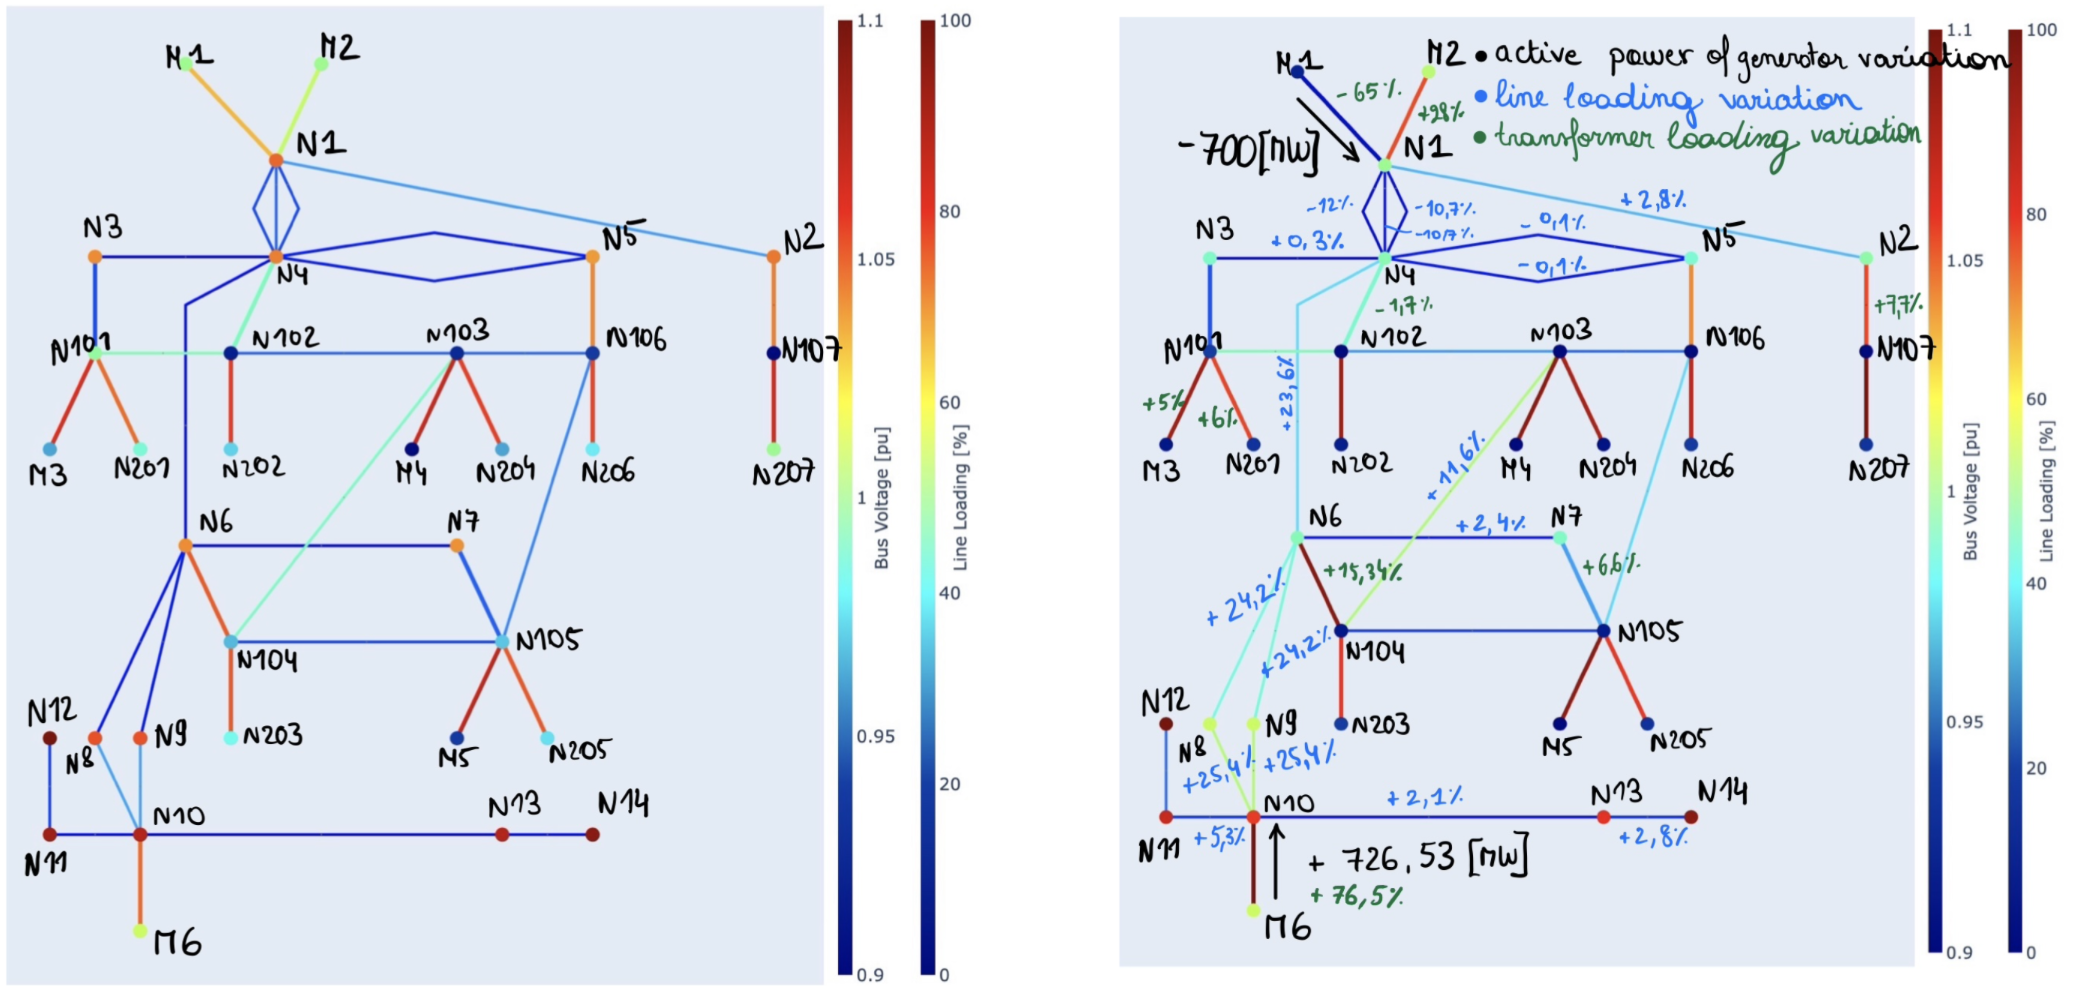 M1
M2
N1
N3
N5
N2
N4
N101
N102
N103
N106
N107
M3
N201
N202
M4
N204
N206
N207
N6
N7
N104
N105
N12
N8
N9
N203
M5
N205
N10
N13
N14
N11
M6
1.1
1.05
1
0.95
0.9
Bus Voltage [pu]
100
80
60
40
20
0
Line Loading [%]
M1
M2
• active power of generator variation
• line loading variation
• transformer loading variation
-65%
+28%
-700[MW]
N1
-12%
-10,7%
-10,7%
+2,8%
N3
+0,3%
-0,1%
-0,1%
N5
N2
N4
-1,7%
+7,7%
N101
N102
N103
N106
N107
+5%
+6%
+23,6%
M3
N201
N202
M4
N204
N206
N207
+11,6%
N6
+2,4%
N7
+15,34%
+6,6%
+24,2%
+24,2%
N104
N105
N12
N8
N9
N203
M5
N205
+25,4%
+25,4%
N10
+2,1%
N13
N14
N11
+5,3%
+2,8%
+ 726,53 [MW]
+ 76,5%
M6
1.1
1.05
1
0.95
0.9
Bus Voltage [pu]
100
80
60
40
20
0
Line Loading [%]